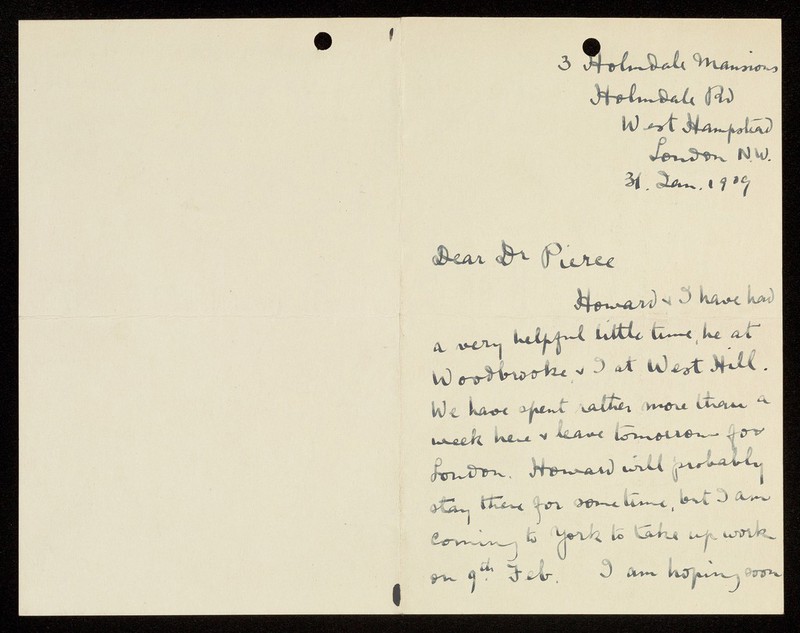 3 Holmdale Mansions
Holmdale Rd
West Hampstead
London N.W.
31. Jan. 1909
Dear Dr Pierce
Howard & I have had
a very helpful little time, he at
Woodbrooke, & I at West Hill.
We have spent rather more than a
week here & leave tomorrow for
London. Howard will probably
stay there for some time, but I am
coming to York to take up work
on 9th Feb. I am hoping soon